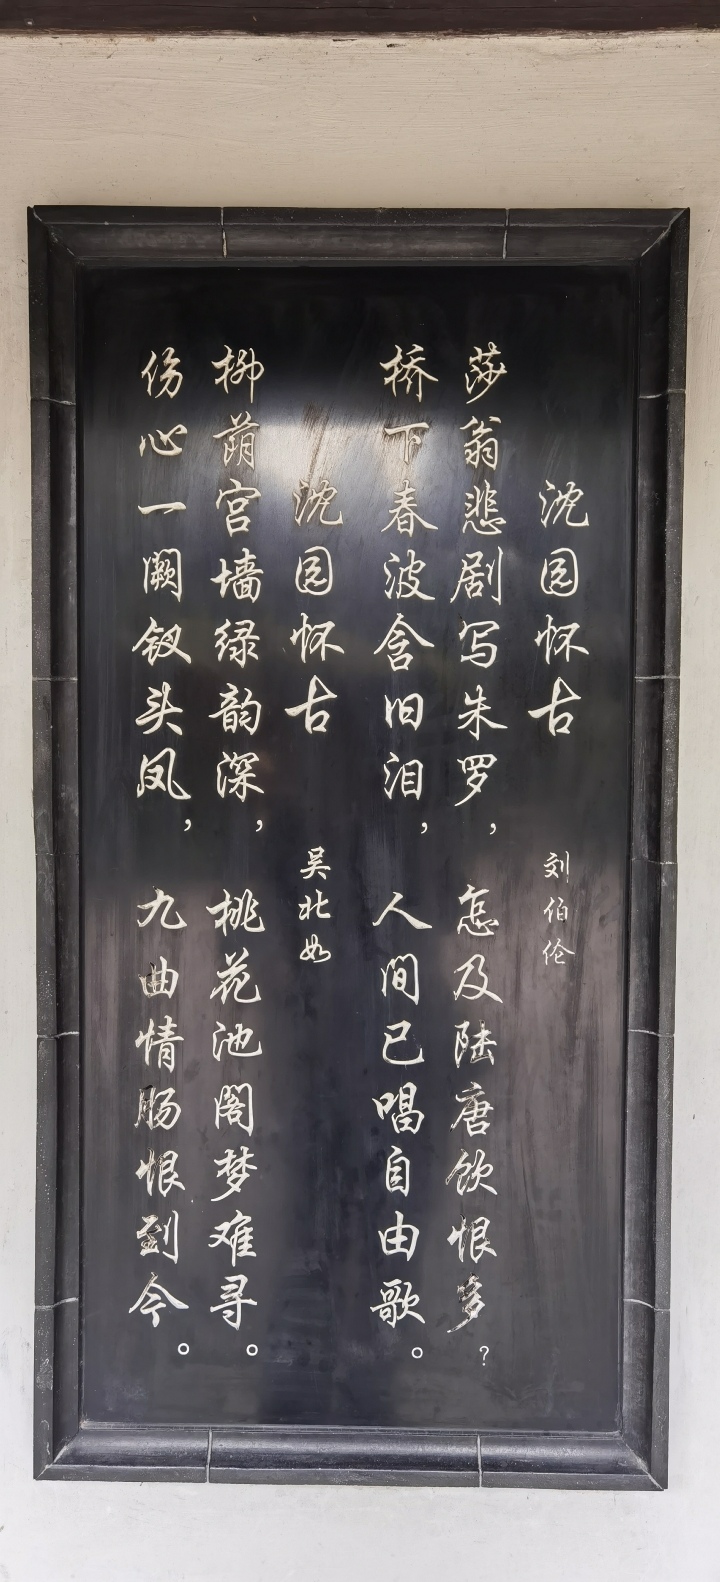 沈园怀古 刘伯伦
莎翁悲剧写朱罗，怎及陆唐饮恨多？
桥下春波含旧泪，人间已唱自由歌。
沈园怀古 吴北如
柳荫宫墙绿韵深，桃花池阁梦难寻。
伤心一阕钗头凤，九曲情肠恨到今。